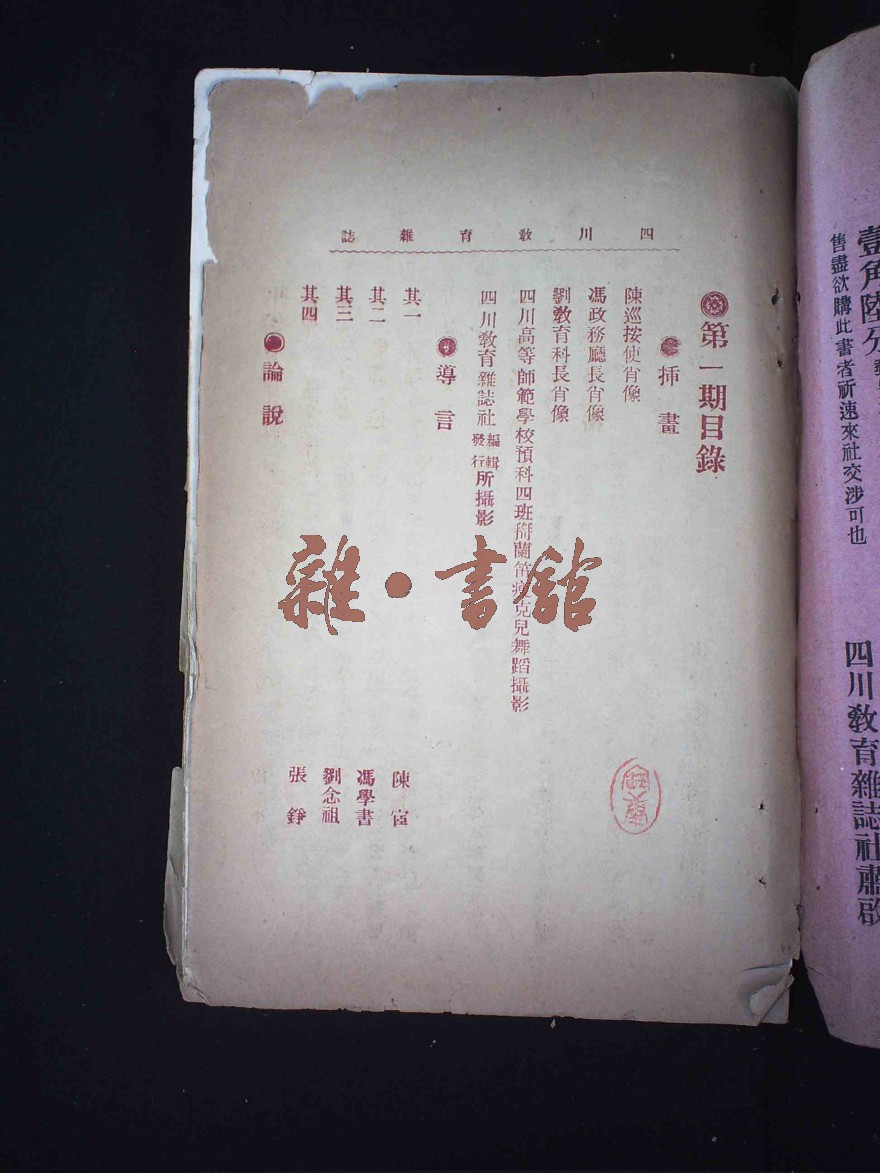 壹角陸分
售盡欲購此書者祈速來社交涉可也
四川教育雜誌社肅啟
四川教育雜誌
第一期目錄
挿畫
陳巡按使肖像
馮政務廳長肖像
劉教育科長肖像
四川高等師範學校預科四班 蘭笛 克兒舞蹈攝影
四川教育雜誌社編輯發行所攝影
導言
其一 陳宧
其二 馮學書
其三 劉念祖
其四 張錚
論說
雜·書館